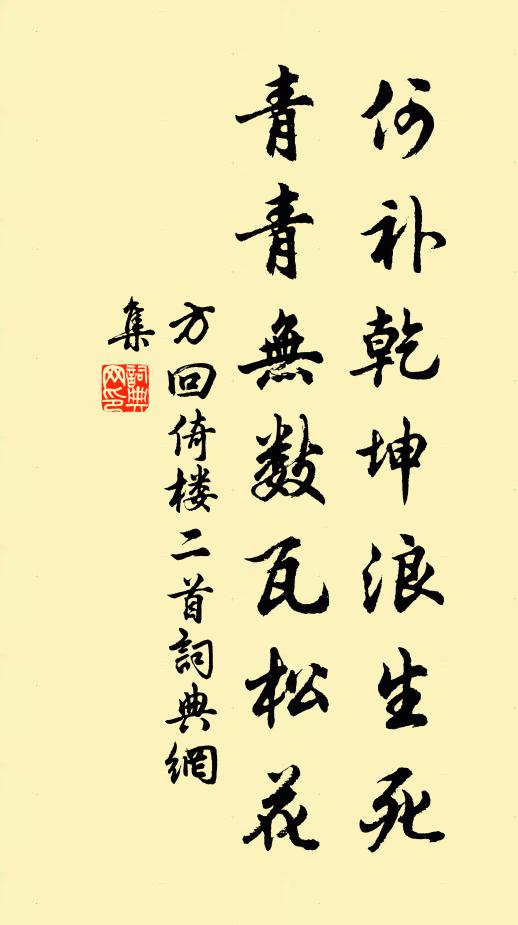 何补乾坤浪生死
青青無数瓦松花
方回倚楼二首詞典網
集
詞典网印